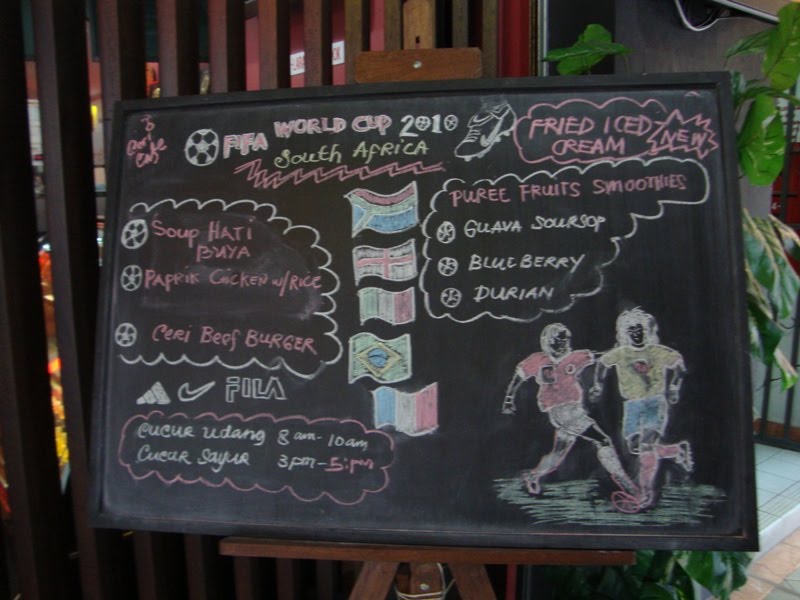 FIFA WORLD CUP 2010
South AFRICA
FRIED ICED
CREAM NEW
PUREE FRUITS SMOOTHIES
GUAVA SOURSOP
BLUEBERRY
DURIAN
Soup HATI
BUYA
PAPRIK CHICKEN w/RICE
Ceri Beef BURGER
FILA
CUCUR UDANG 8am-10am
CUCUR SAYUR 3pm-5:pm